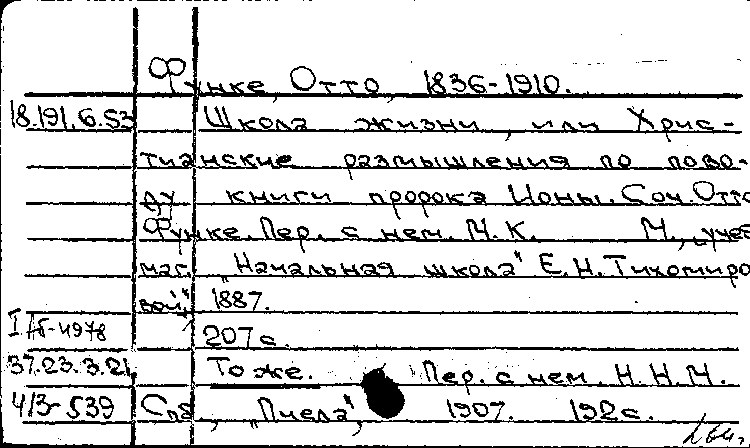 Функе, Отто, 1836-1910.
18.191.6.53 Школа жизни, или Хрис-
тианские размышления по пово-
ду книги пророка Ионы. Соч. Отто
Функе. Пер. с нем. М.К. М., учеб.
маг. „Начальная школа" Е.Н. Тихомиро
вой, 1887.
207 с.
37.23.3.21. То же. Пер. с нем. Н.Н.М.
Спб, „Пчела", 1907. 192 с.